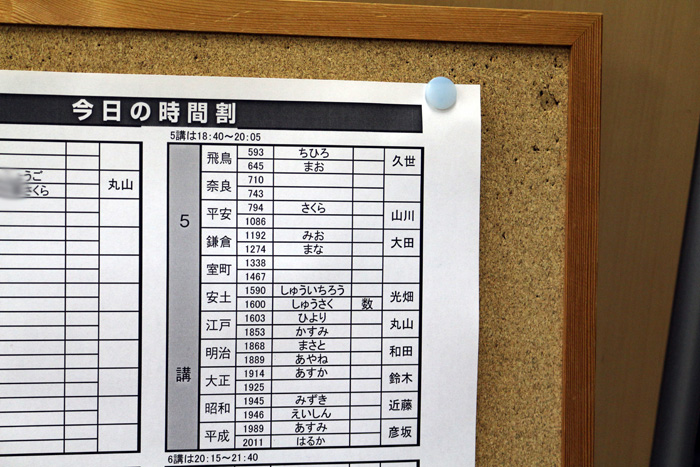 今日の時間割
うご
さくら
丸山
5講は18:40～20:05
5講
飛鳥 593 ちひろ 久世
645 まお
奈良 710
743
平安 794 さくら 山川
1086
鎌倉 1192 みお 大田
1274 まな
室町 1338
1467
安土 1590 しゅういちろう 光畑
1600 しゅうさく 数
江戸 1603 ひより 丸山
1853 かすみ
明治 1868 まさと 和田
1889 あやね
大正 1914 あすか 鈴木
1925
昭和 1945 みずき 近藤
1946 えいしん
平成 1989 あすみ 彦坂
2011 はるか
6講は20:15～21:40